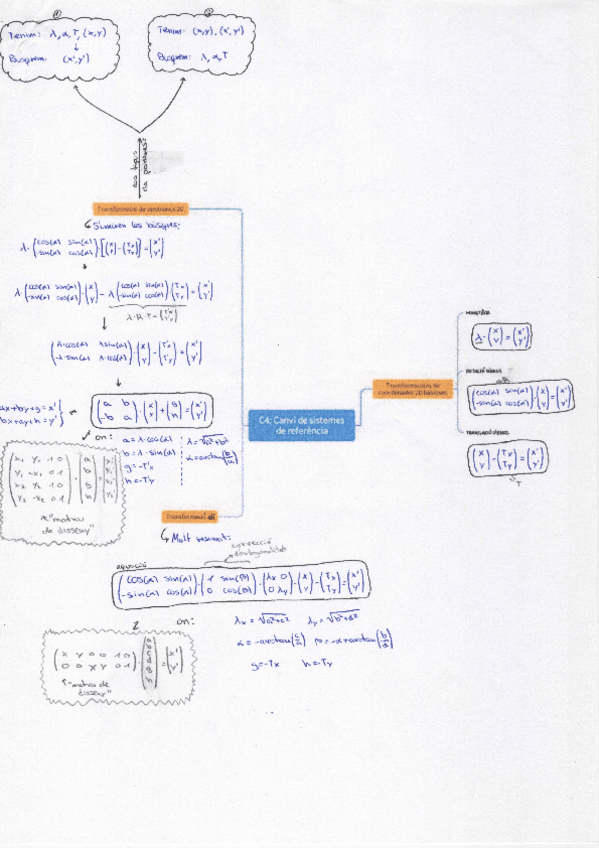 ①
Tenim: λ, α, T, (x,y)
↓
Busquem: (x',y')
②
Tenim: (x,y), (x',y')
Busquem: λ, α, T
dos tipus
de problemes:
Transformació de semblança 2D
↳ S'uneixen les bàsiques:
λ·(cos(α) sin(α) / -sin(α) cos(α))·[(x / y)-(Tx / Ty)]=(x' / y')
↓
λ·(cos(α) sin(α) / -sin(α) cos(α))·(x / y)-λ(cos(α) sin(α) / -sin(α) cos(α))·(Tx / Ty)=(x' / y')
λ·R·T=(T'x / T'y)
↓
(λ·cos(α) λsin(α) / -λ·sin(α) λ·cos(α))·(x / y)-(T'x / T'y)=(x' / y')
↓
ax+by+g=x'
-bx+ay+h=y'
(a b / -b a)·(x / y)+(g / h)=(x' / y')
on:
a=λ·cos(α)
b=λ·sin(α)
g=-T'x
h=-T'y
λ=√a²+b²
α=arctan(b/a)
(x₁ y₁ 1 0 / y₁ -x₁ 0 1 / x₂ y₂ 1 0 / y₂ -x₂ 0 1)·(a / b / g / h)=(x₁' / y₁' / x₂' / y₂')
"matriu
de disseny"
C4: Canvi de sistemes
de referència
Transformacions de
coordenades 2D bàsiques
λ·(x / y)=(x' / y')
(cos(α) sin(α) / -sin(α) cos(α))·(x / y)=(x' / y')
(x / y)-(Tx / Ty)=(x' / y')
T
Transformació
↳ Molt resumit:
correcció
d'ortogonalitat
(cos(α) sin(α) / -sin(α) cos(α))·(1 sin(β) / 0 cos(β))·(λx 0 / 0 λy)·(x / y)-(Tx / Ty)=(x' / y')
on:
λx=√a²+c² λy=√b²+d²
α=-arctan(c/a) β=-α+arctan(b/d)
g=-Tx h=-Ty
(x y 0 0 1 0 / 0 0 x y 0 1)·(a / b / c / d / g / h)=(x' / y')
"matriu de
disseny"